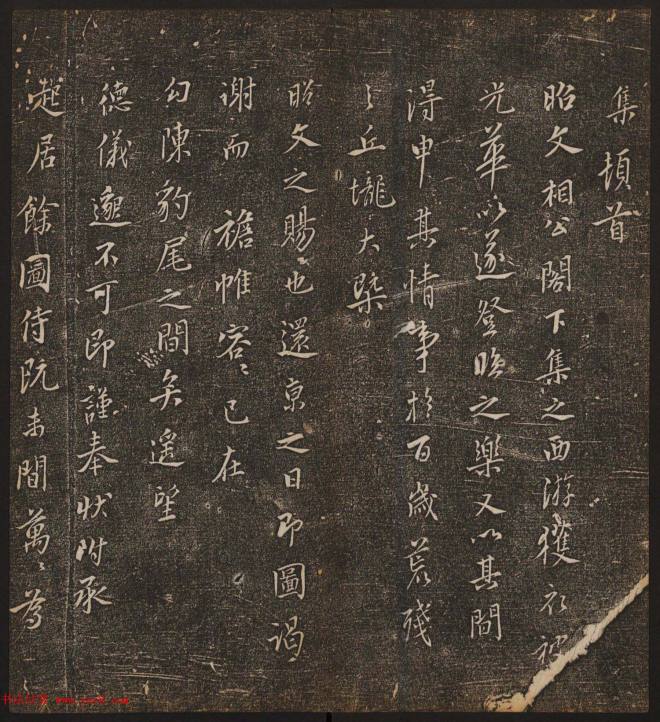 集頓首
昭文相公閣下集之西游獲衣被
光華以遂登臨之樂又以其間
得申其情事於百歲荒殘
之丘壠大槩
昭文之賜也還京之日即圖謁
謝而襜帷容容已在
勾陳豹尾之間矣遙望
德儀邈不可即謹奉狀附承
起居餘圖侍既未間萬萬為